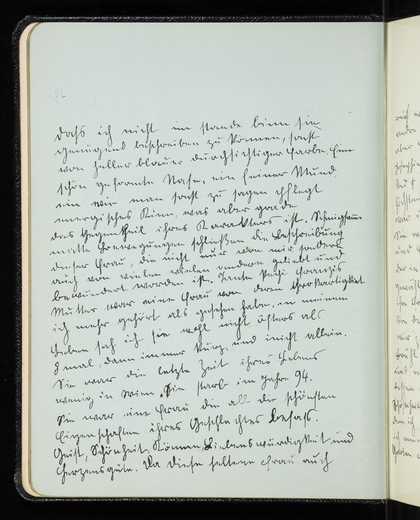 dass ich nicht im stande binn sie
genügend beschreiben zu können, sonst
von heller blauer durchsichtiger Farbe. Eine
schön geformte Nase, ein feiner Mund
ein wie man sonst zu sagen pflegt
energisches Kinn, was aber grade
das Gegentheil ihres Karakters ist.
matte Bewegungen schließen die Beschreibung
dieser Frau, die nicht nur von mir sondern
auch von vielen vielen anderen geliebt und
bewundert worden ist.
Mutter war eine Frau von deren
ich mehr gehört als gesehen habe, in meinem
Leben sah ich sie wohl nicht öfters als
8 mal, dann immer kurz, und nicht allein.
Sie war die letzte Zeit ihres Lebens
wenig in Wien. Sie starb im Jahre 94.
Sie war eine Frau die all die schönsten
Eigenschaften ihres Geschlechtes besass.
Geist, Schönheit, Können Liebenswürdigkeit und
Herzensgüte. Da diese seltene Frau auch